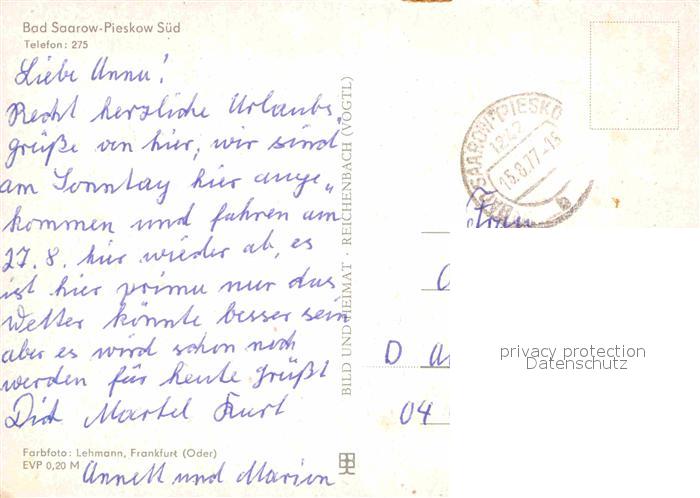 Bad Saarow-Pieskow Süd
Telefon: 275
Liebe Anna!
Recht herzliche Urlaubs,
grüße von hier, wir sind
am Sonntag hier ange„
kommen und fahren am
27. 8. hier wieder ab, es
ist hier prima nur das
Wetter könnte besser sein
aber es wird schon noch
werden für heute grüßt
Dich Martel Kurt
Annett und Marion
Farbfoto: Lehmann, Frankfurt (Oder)
EVP 0,20 M
BILD UND HEIMAT · REICHENBACH (VOGTL)
BAD SAAROW-PIESKO
1242
15.8.77-15
a
Frau
D
04
privacy protection
Datenschutz